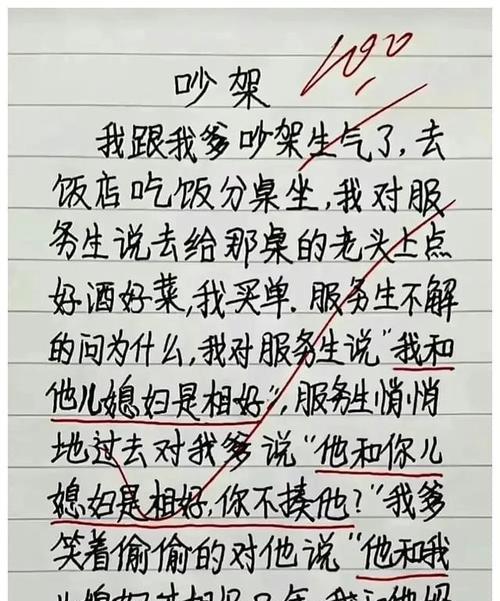 100
吵架
我跟我爹吵架生气了,去
饭店吃饭分桌坐,我对服
务生说去给那桌的老头上点
好酒好菜,我买单.服务生不解
的问为什么,我对服务生说"我和
他儿媳妇是相好",服务生悄悄
地过去对我爹说"他和你儿
媳妇是相好,你不揍他?"我爹
笑着偷偷的对他说"他和我